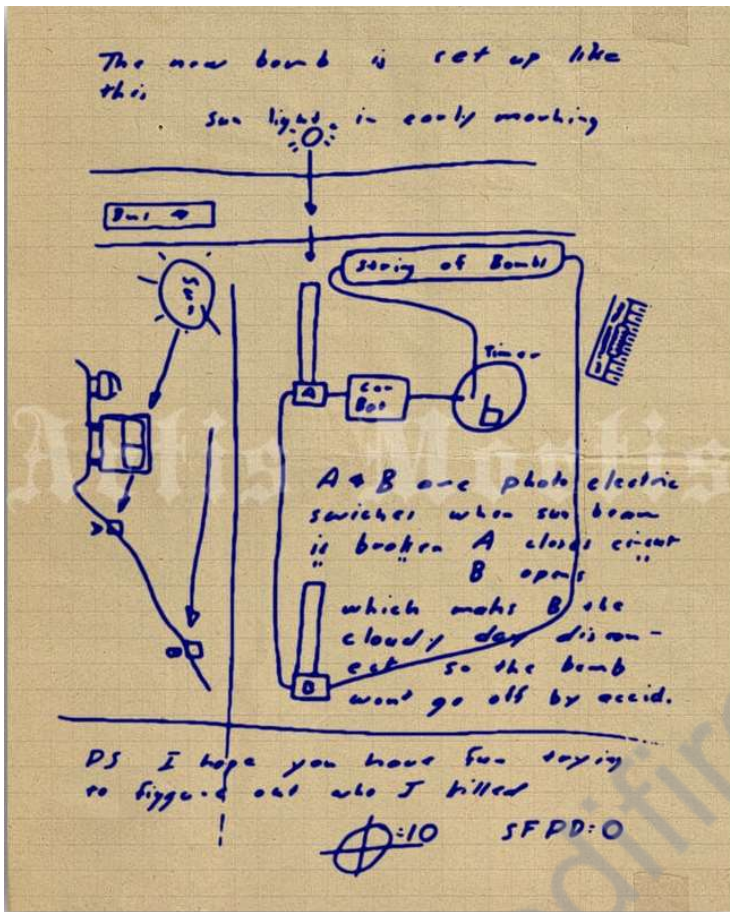 The new bomb is set up like
this
sun light in early morning
Bus
String of Bombs
Sun
Timer
A
Car
Bat
A & B are photo electric
swiches when sun beam
is broken A closes circut
" " B opens
B
which mahs B the
cloudy day discon-
ect so the bomb
wont go off by accid.
PS I hope you have fun trying
to figgure out who I killed
=10 SFPD=0
Artis Mortis